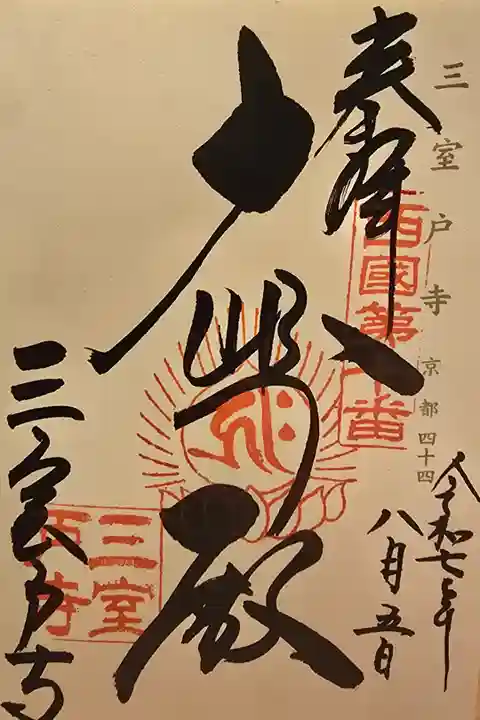 三室戸寺 京都四十四
奉拝
西國第十番
令和七年
八月五日
大悲殿
三室戸寺
三室
戸寺